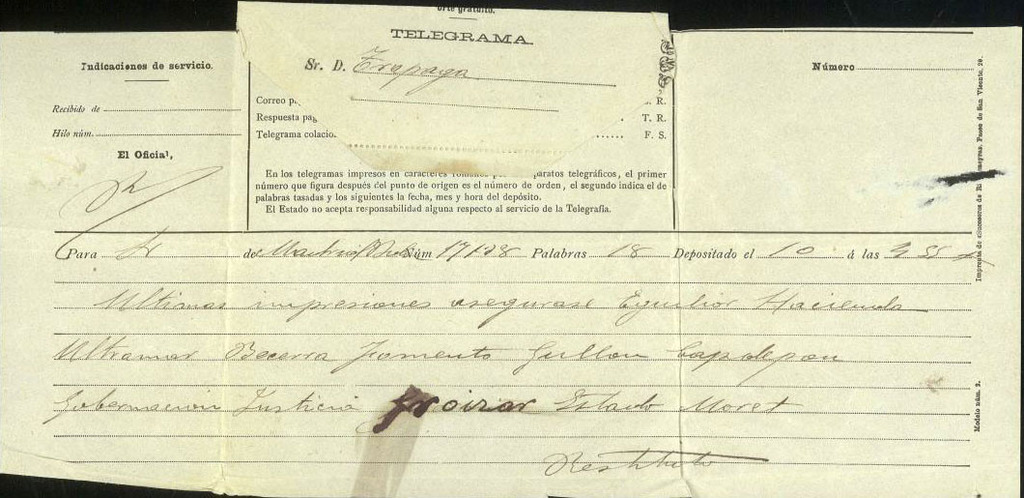 orte gratuito.
TELEGRAMA
Indicaciones de servicio.
Sr. D. Trapaga
Número
Recibido de
Correo p
. R.
Hilo núm.
Respuesta pag
T. R.
Telegrama colacio.
F. S.
El Oficial,
En los telegramas impresos en caracteres romanos p aparatos telegráficos, el primer
número que figura después del punto de origen es el número de orden, el segundo indica el de
palabras tasadas y los siguientes la fecha, mes y hora del depósito.
El Estado no acepta responsabilidad alguna respecto al servicio de la Telegrafía.
Para de Madrid Núm 17128 Palabras 18 Depositado el 10 á las 3 55
Ultimas impresiones asegurase Eguilior Hacienda
Ultramar Becerra Fomento Gullon Capdepon
Gobernacion Justicia Groizar Estado Moret
Restituto
Imprenta de Paseo de San Vicente, 20.
Modelo núm. 2.